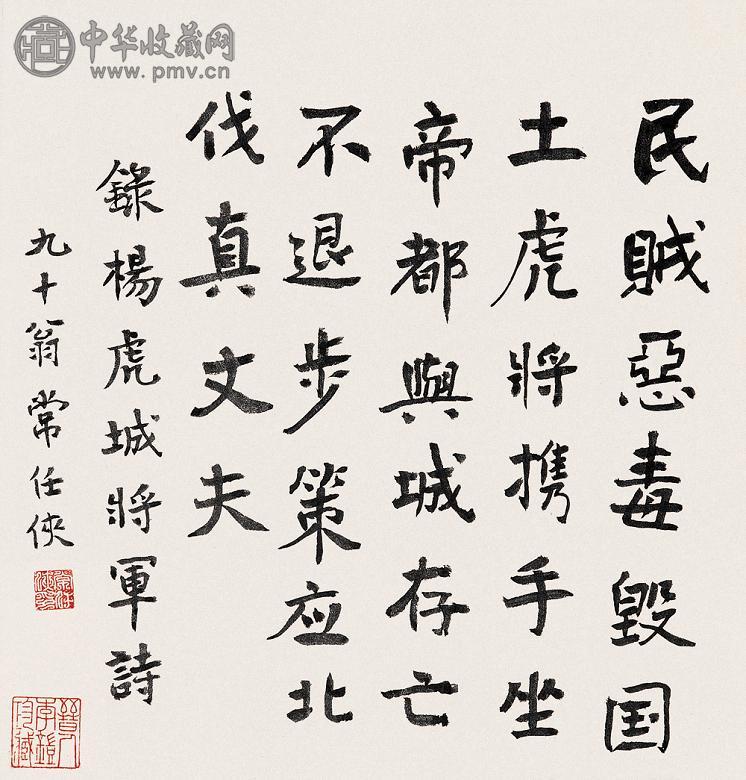 民賊惡毒毀国
土虎將携手坐
帝都與城存亡
不退步策应北
伐真丈夫
錄楊虎城將軍詩
九十翁常任俠
中华收藏网
www.pmv.cn